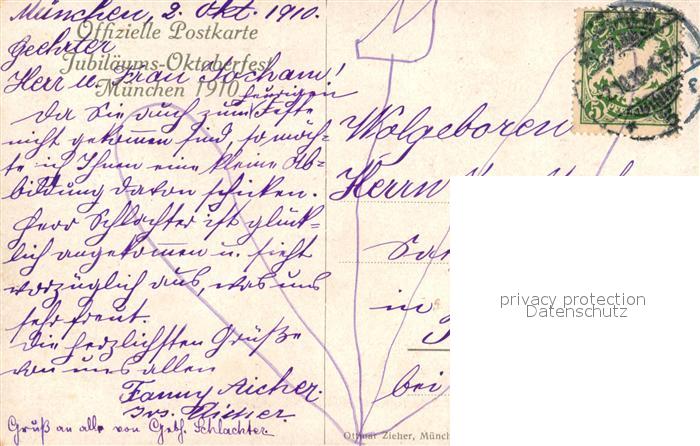 München, 2. Okt. 1910.
Offizielle Postkarte
Geehrter
Jubiläums-Oktoberfest
Herr u. Frau Jocham!
München 1910
Da Sie auch zum heurigen Feste
nicht gekommen sind, so möch-
te ich Ihnen eine kleine Ab-
bildung davon schicken.
Herr Schlachter ist glück-
lich angekommen u. sieht
vorzüglich aus, was uns
sehr freut.
Die herzlichsten Grüße
von uns allen
Fanny Aicher.
Jos. Aicher.
Gruß an alle von Gebh. Schlachter.
Wolgeboren
Herrn
in
bei
Ottmar Zieher, Münch
5
privacy protection
Datenschutz